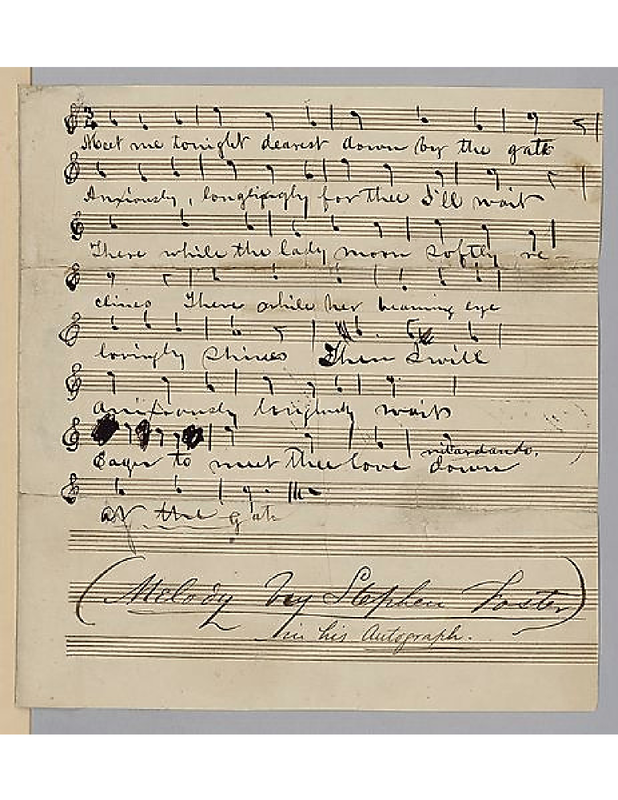 Meet me tonight dearest down by the gate
Anxiously, longlingly for thee I'll wait
There while the lady moon softly re-
clines There while her beaming eye
lovingly shines Then I will
anxiously longingly wait
ritardando.
Eager to meet thee love down
by the gate
(Melody by Stephen Foster)
in his Autograph.